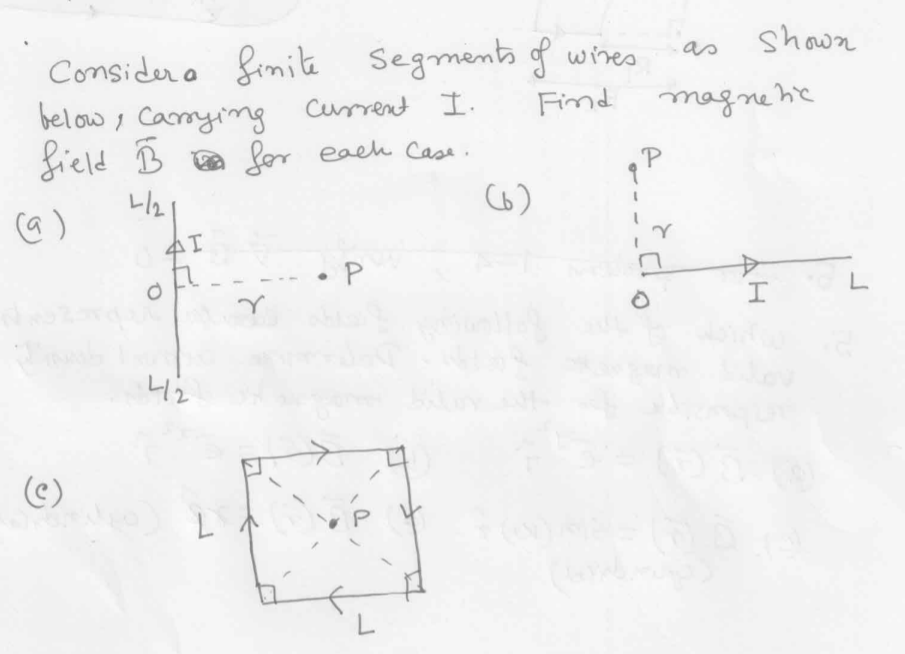 Consider finite segments of wires as shown
below, carrying current I. Find magnetic
field B̄ for each case.
(a)
L/2
I
O
r
P
L/2
(b)
P
r
O
I
L
(c)
L
P
L